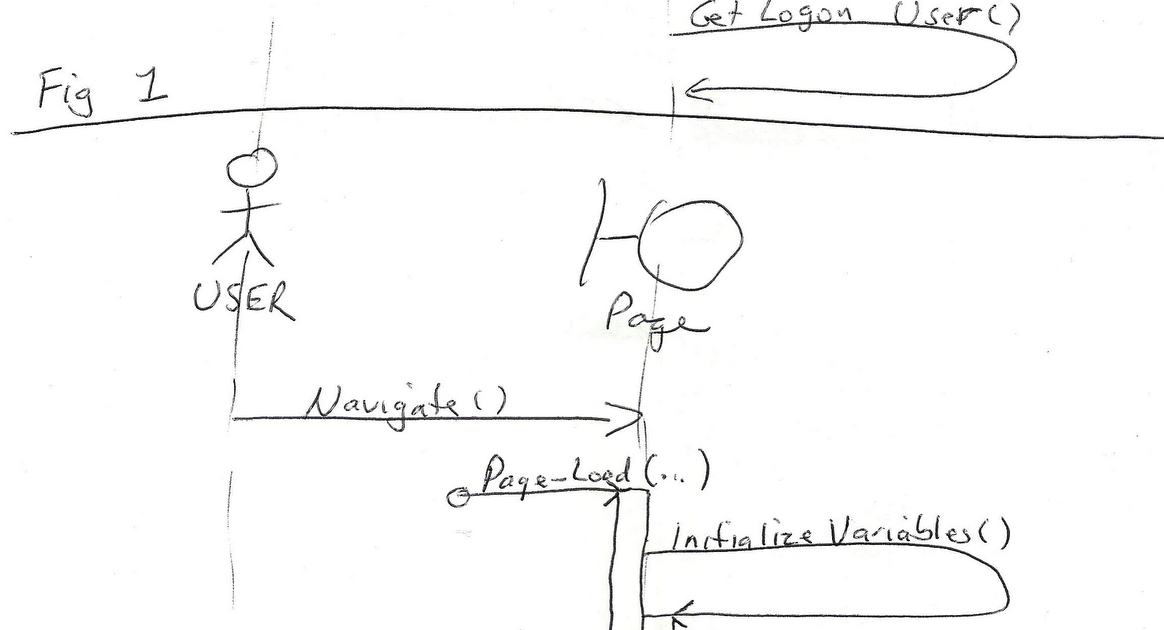 Get Logon User()
Fig 1
USER
Page
Navigate()
Page-Load(...)
Initialize Variables()